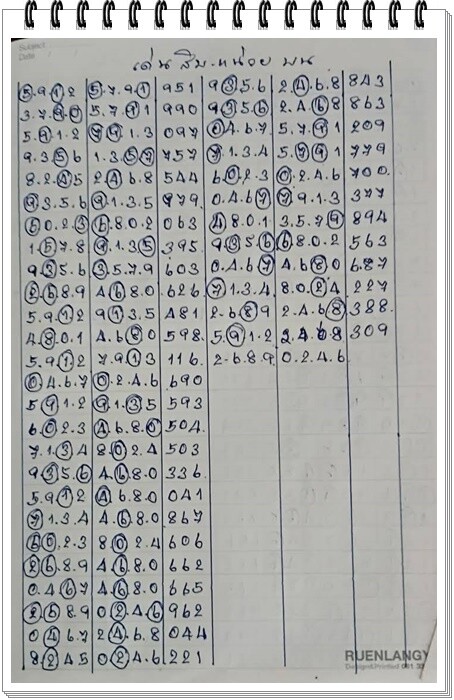 Subject
Date
เด่น สิบ-หน่วย บน
5.9.1.2 5.7.9.1 951 9.3.5.6 2.4.6.8 843
3.7.9.0 5.7.9.1 990 9.3.5.6 2.4.6.8 863
5.9.1.2 9.9.1.3 097 0.4.6.7 5.7.9.1 209
9.3.5.6 1.3.5.7 757 7.1.3.4 5.7.9.1 779
8.2.4.5 2.4.6.8 544 6.0.2.3 0.2.4.6 700
9.3.5.6 9.1.3.5 979 0.4.6.7 7.9.1.3 377
6.0.2.3 6.8.0.2 063 4.8.0.1 3.5.7.9 894
1.5.7.8 9.1.3.5 395 9.3.5.6 6.8.0.2 563
9.3.5.6 3.5.7.9 603 0.4.6.7 4.6.8.0 687
2.6.8.9 4.6.8.0 626 7.1.3.4 8.0.2.4 227
5.9.1.2 9.1.3.5 481 2.6.8.9 2.4.6.8 388
4.8.0.1 4.6.8.0 598 5.9.1.2 2.4.6.8 309
5.9.1.2 7.9.1.3 116 2.6.8.9 0.2.4.6
0.4.6.7 0.2.4.6 690
5.9.1.2 9.1.3.5 593
6.0.2.3 4.6.8.0 504
7.1.3.4 8.0.2.4 503
9.3.5.6 4.6.8.0 336
5.9.1.2 4.6.8.0 041
7.1.3.4 4.6.8.0 867
6.0.2.3 8.0.2.4 606
2.6.8.9 4.6.8.0 662
0.4.6.7 4.6.8.0 665
2.6.8.9 0.2.4.6 962
0.4.6.7 2.4.6.8 044
8.2.4.5 0.2.4.6 221
RUENLANGY